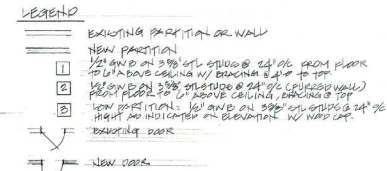 LEGEND
EXISTING PARTITION OR WALL
NEW PARTITION
1 1/2" GWB ON 3 5/8" STL STUDS @ 24" O/C FROM FLOOR
TO 6" ABOVE CEILING W/ BRACING @ 4'-0 TO TOP
2 1/2" GWB ON 3 5/8" STL STUDS @ 24" O/C (FURRED WALL)
FROM FLOOR TO 6" ABOVE CEILING, BRACING @ TOP
3 LOW PARTITION: 1/2" GWB ON 3 5/8" STL STUDS @ 24" O/C
HIGHT AS INDICATED ON ELEVATION W/ WOOD CAP.
EXISTING DOOR
NEW DOOR